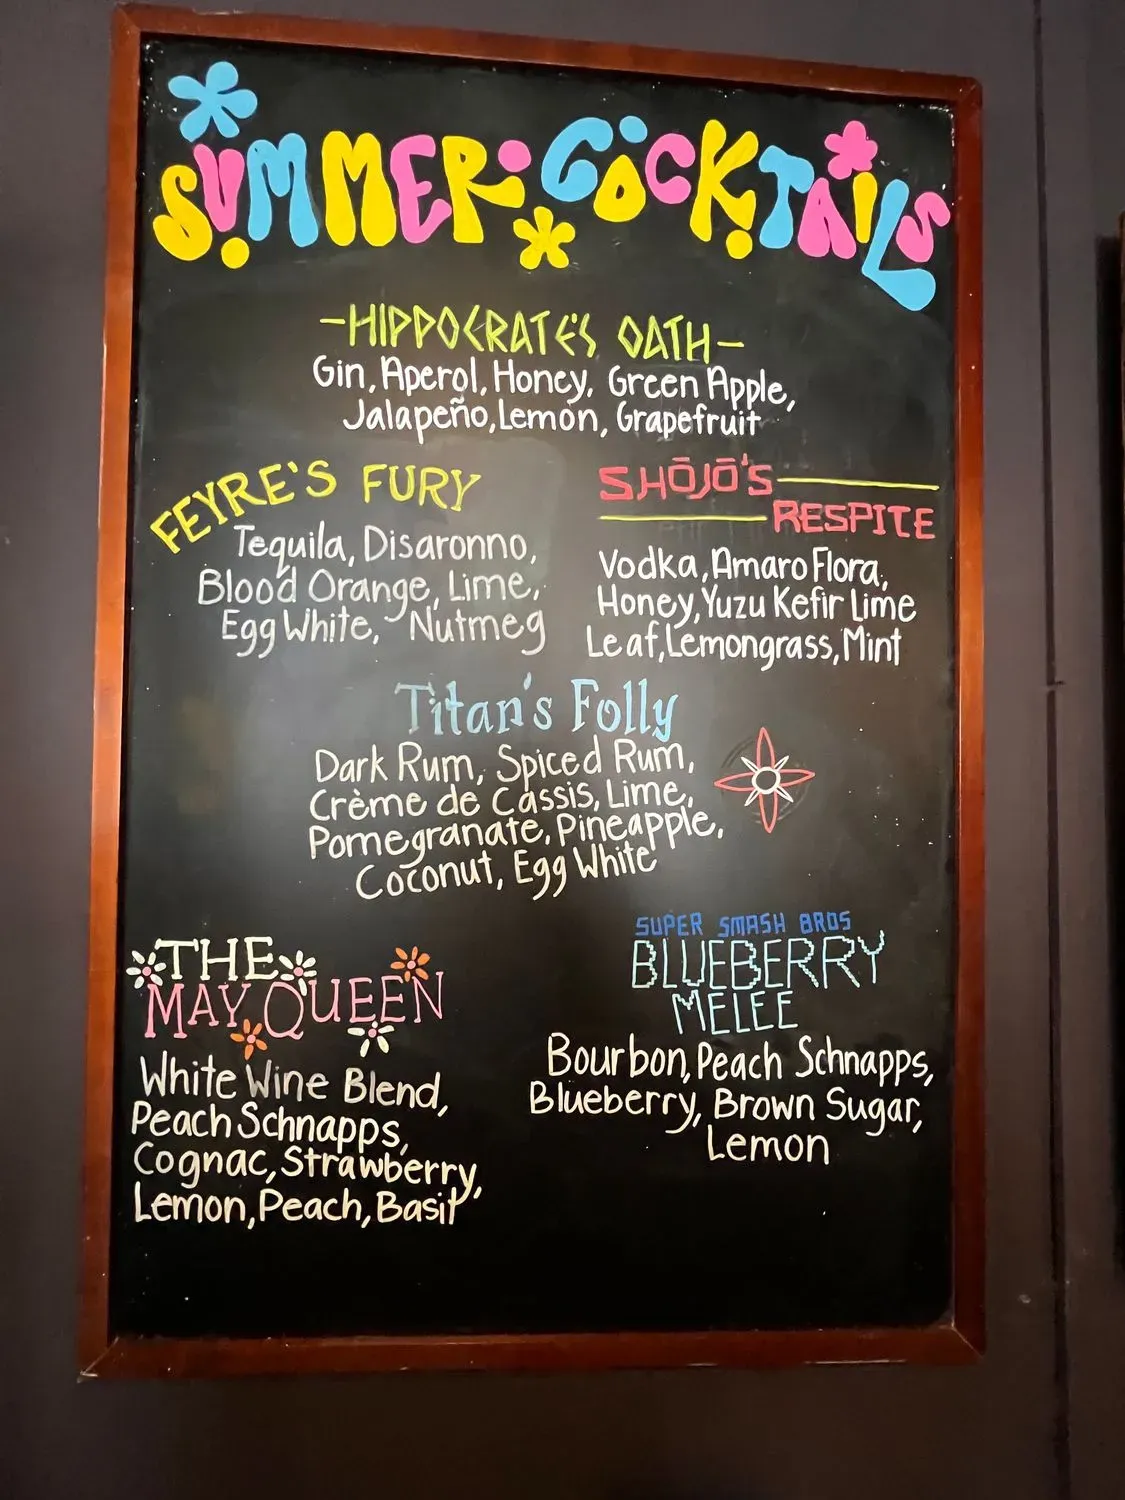 SUMMER COCKTAILS
-HIPPOCRATE'S OATH-
Gin, Aperol, Honey, Green Apple,
Jalapeño, Lemon, Grapefruit
FEYRE'S FURY
Tequila, Disaronno,
Blood Orange, Lime,
Egg White, Nutmeg
SHŌJŌ'S
RESPITE
Vodka, Amaro Flora,
Honey, Yuzu Kefir Lime
Leaf, Lemongrass, Mint
Titan's Folly
Dark Rum, Spiced Rum,
Crème de Cassis, Lime,
Pomegranate, Pineapple,
Coconut, Egg White
THE
MAY QUEEN
White Wine Blend,
Peach Schnapps,
Cognac, Strawberry,
Lemon, Peach, Basil
SUPER SMASH BROS
BLUEBERRY
MELEE
Bourbon, Peach Schnapps,
Blueberry, Brown Sugar,
Lemon